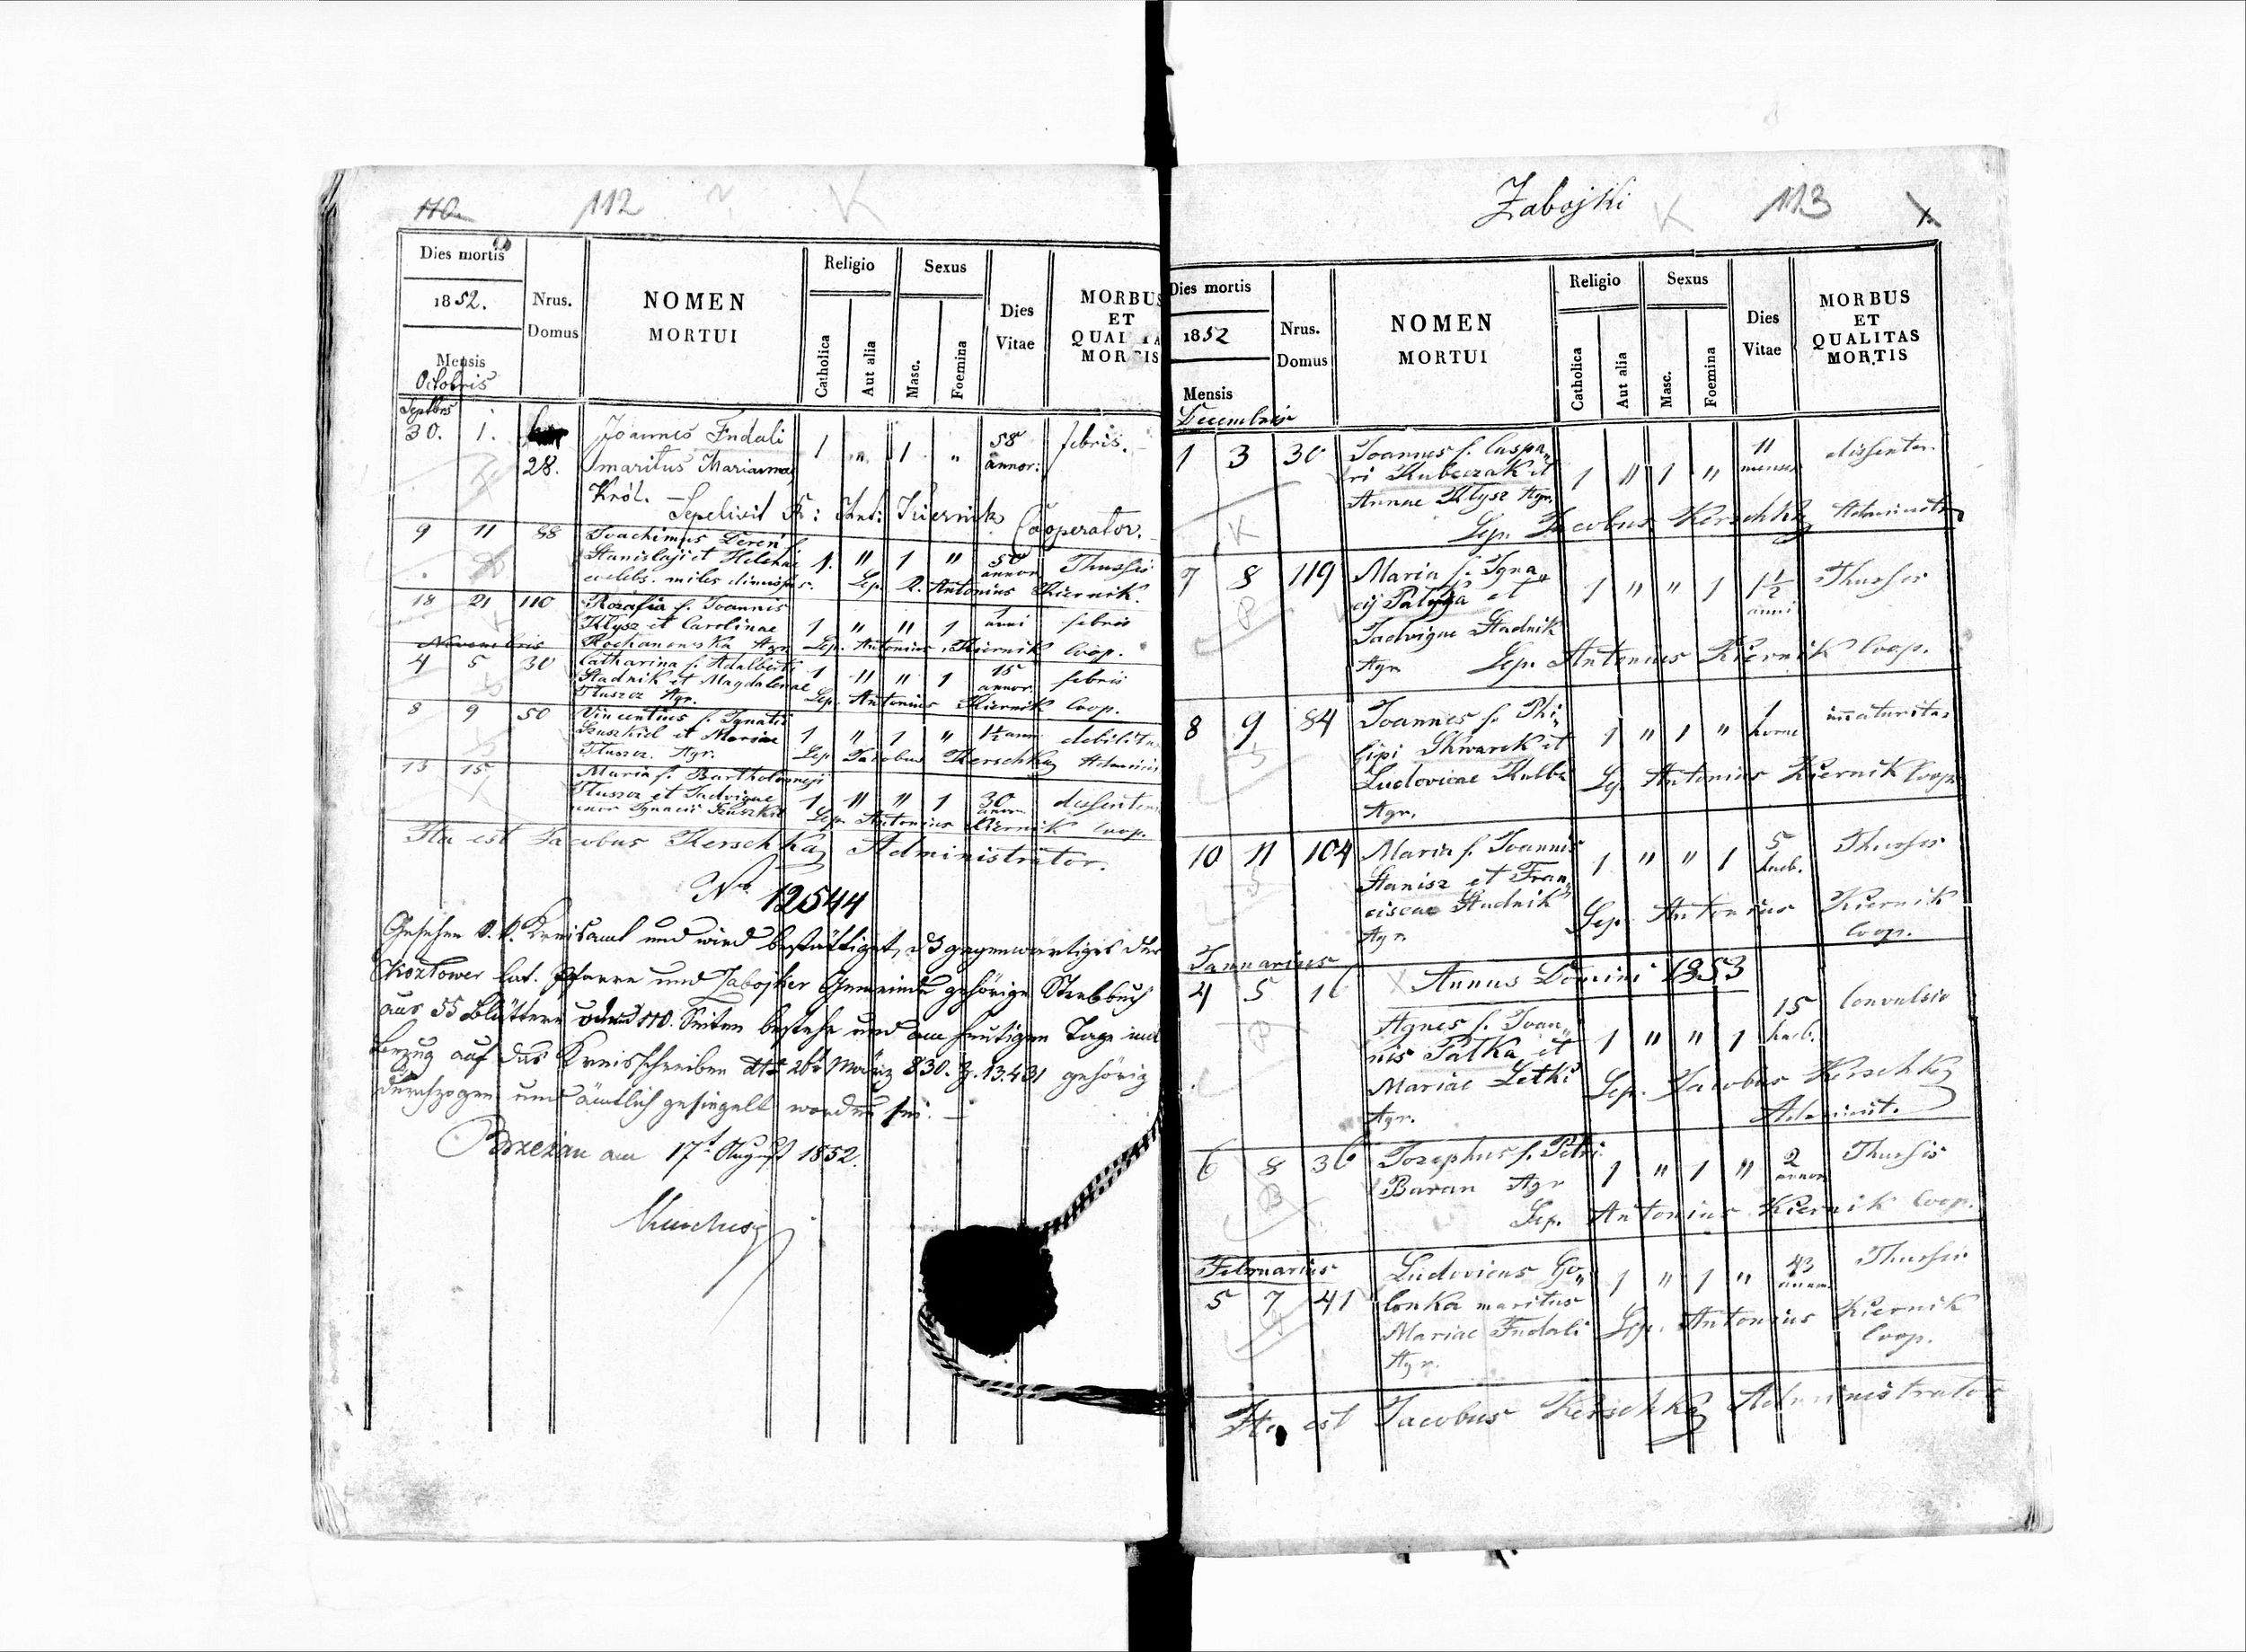 112
K
Dies mortis
1852.
Mensis
Octobris
Nrus.
Domus
NOMEN
MORTUI
Religio
Catholica
Aut alia
Sexus
Masc.
Foemina
Dies
Vitae
MORBUS
ET
MORTIS
Septbris
30. 1. 28. Joannes Fndali 1 " 1 " 58 annor: febris.
maritus Mariannae
Król. — Sepelivit R: Ant: Kiernik Cooperator.
9 11 88 Joachimus Deren f.
Stanislaji et Helenae 1. " 1 " 50 annor Thussis
caelebs. miles dimissus. Sep. R. Antonius Kiernik.
18 21 110 Rozalia f. Joannis
Klysz et Carolinae 1 " " 1 1 anni febris
Kochanowska Agr. Sep. Antonius Kiernik Coop.
Novembris
4 5 30 Catharina f. Adalberti
Stadnik et Magdalenae 1 " " 1 15 annor. febris
Tluszcz Agr. Sep. Antonius Kiernik Coop.
8 9 50 Vincentius f. Ignatii
Szuszkiel et Mariae 1 " 1 " 1½ anni debilitas
Tluszcz. Agr. Sep. Jacobus Kerschka Adminis
13 15 Maria f. Bartholomeji
Tluszcz et Jadvigae 1 " " 1 30 annor dissenter
uxor Ignacii Szuszkiel Sep. Antonius Kiernik Coop.
Ita est Jacobus Kerschka Administrator.
No 12544
Gesehen v. k. Kreisamt und wird bestättiget, daß gegenwärtiges der
Kozlower lat. Pfarre und Zabojker Gemeinde gehörige Sterbbuch
aus 55 Blättern oder 110. Seiten bestehe und am heutigen Tage mit
Bezug auf das Kreisschreiben dto 26t März 830. Z. 13.431 gehörig
durchzogen und ämtlich gesiegelt worden sei. —
Brzeżan am 17t August 1852.
Zabojki
K
113
1.
Dies mortis
1852
Mensis
Decembris
Nrus.
Domus
NOMEN
MORTUI
Religio
Catholica
Aut alia
Sexus
Masc.
Foemina
Dies
Vitae
MORBUS
ET
QUALITAS
MORTIS
1 3 30 Joannes f. Caspa„
ri Kubeczak et 1 " 1 " 11 menses dissenter.
Annae Klysz Agr.
Sep. Jacobus Kerschka Administr
7 8 119 Maria f. Igna„
cij Palyga et 1 " " 1 1½ anni Thussis
Jadvigae Stadnik
Agr. Sep. Antonius Kiernik Coop.
8 9 84 Joannes f. Phi„
lipi Skwarek et 1 " 1 " 1 horae immaturitas
Ludovicae Kulba Sep. Antonius Kiernik Coop
Agr.
10 11 104 Maria f. Joannis
Stanisz et Fran„ 1 " " 1 5 heb. Thussis
ciscae Stadnik Sep. Antonius Kiernik
Agr. Coop.
Januarius
Annus Domini 1853
4 5 16 Agnes f. Joan„
nis Palka et 1 " " 1 15 heb. Convulsio
Mariae Letki Sep. Jacobus Kerschka
Agr. Administ.
6 8 36 Josephus f. Petri
Baran Agr 1 " 1 " 2 annor Thussis
Sep. Antonius Kiernik Coop.
Februarius
5 7 41 Ludovicus Go„
lonka maritus 1 " 1 " 43 annor Thussis
Mariae Fndali Sep. Antonius Kiernik
Agr. Coop.
Ita est Jacobus Kerschka Administrator